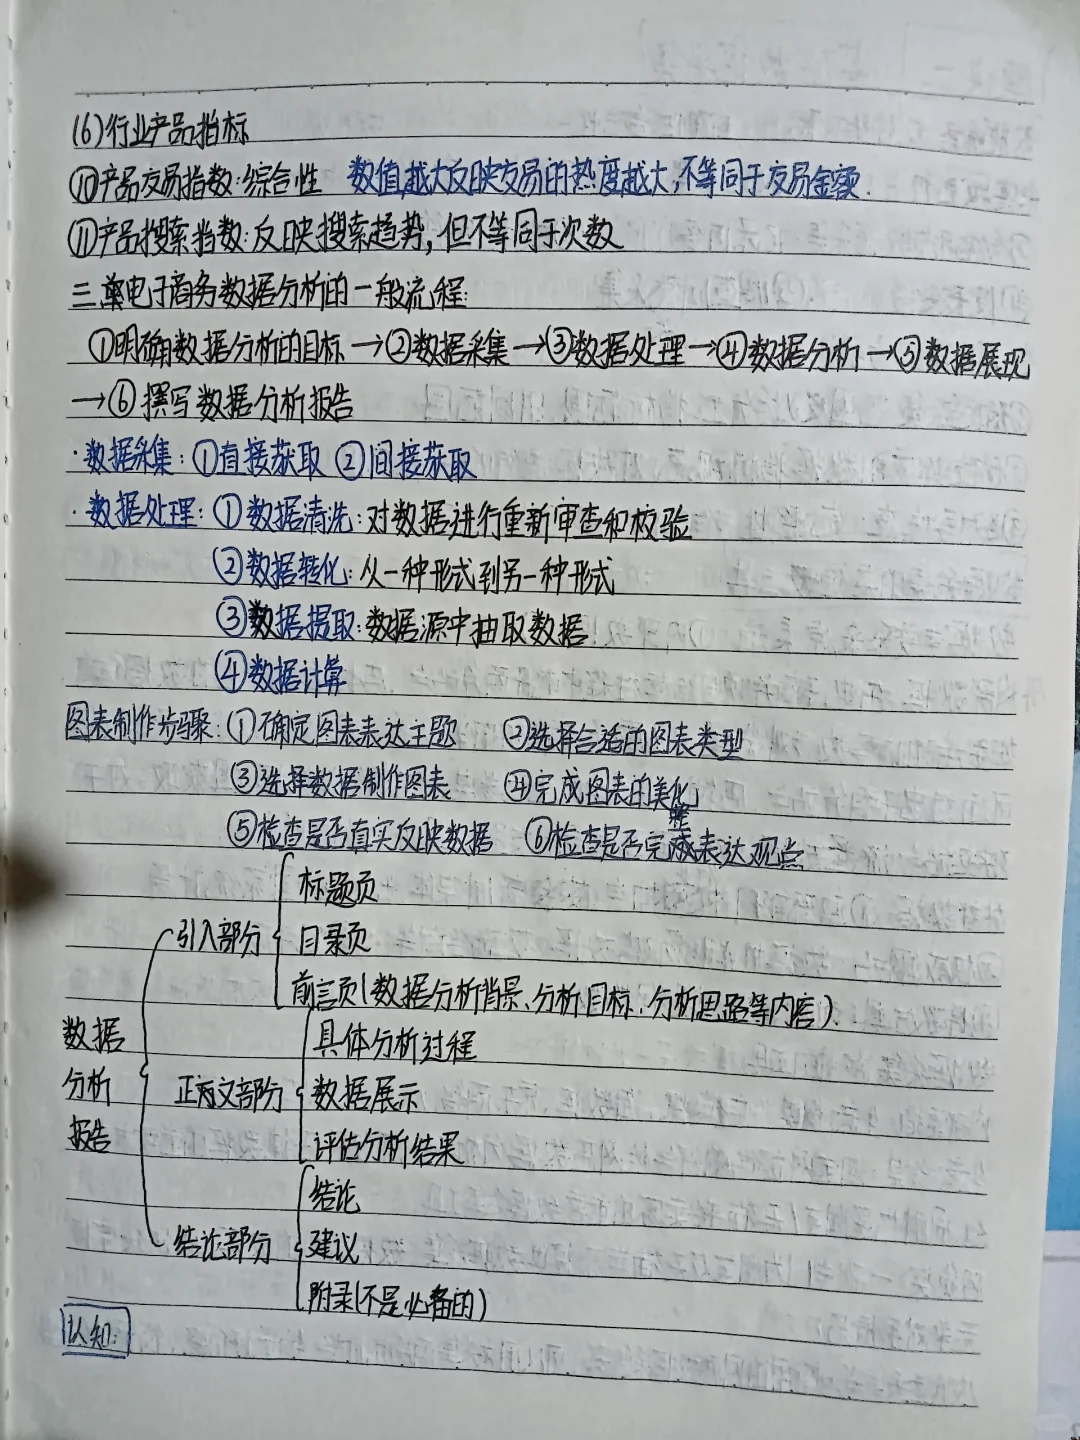 (6)行业产品指标
⑩产品交易指数:综合性 数值越大反映交易的热度越大,不等同于交易金额.
⑪产品搜索指数:反映搜索趋势,但不等同于次数
三.电子商务数据分析的一般流程:
①明确数据分析的目标→②数据采集→③数据处理→④数据分析→⑤数据展现
→⑥撰写数据分析报告
·数据采集:①直接获取 ②间接获取
·数据处理:①数据清洗:对数据进行重新审查和校验
②数据转化:从一种形式到另一种形式
③数据提取:数据源中抽取数据
④数据计算
图表制作步骤:①确定图表表达主题 ②选择合适的图表类型
③选择数据制作图表 ④完成图表的美化
⑤检查是否真实反映数据 ⑥检查是否完整表达观点
标题页
引入部分
目录页
前言页(数据分析背景、分析目标、分析思路等内容).
数据
分析
报告
具体分析过程
正文部分
数据展示
评估分析结果
结论
结论部分
建议
附录(不是必备的)
认知: